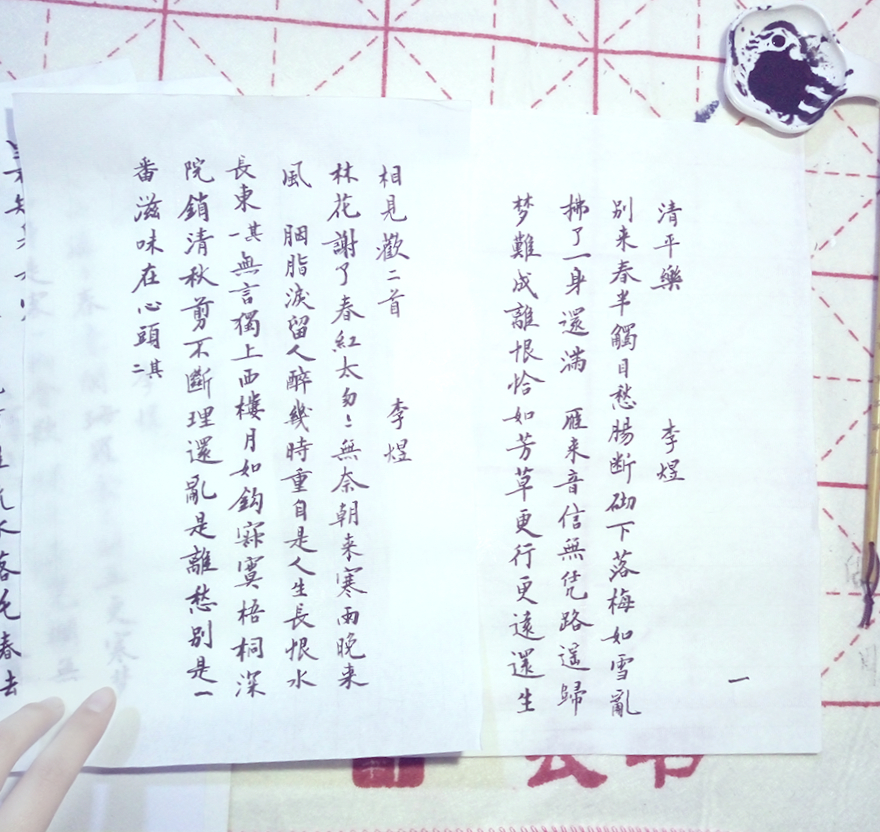 清平樂 李煜
別来春半觸目愁腸断砌下落梅如雪亂
拂了一身還滿 雁来音信無凭路遥歸
梦難成離恨恰如芳草更行更遠還生
一
相見歡二首 李煜
林花謝了春紅太匆〻無奈朝来寒雨晚来
風 胭脂淚留人醉幾時重自是人生長恨水
長東 其一 無言獨上西樓月如鈎寂寞梧桐深
院鎖清秋剪不斷理還亂是離愁別是一
番滋味在心頭 其二